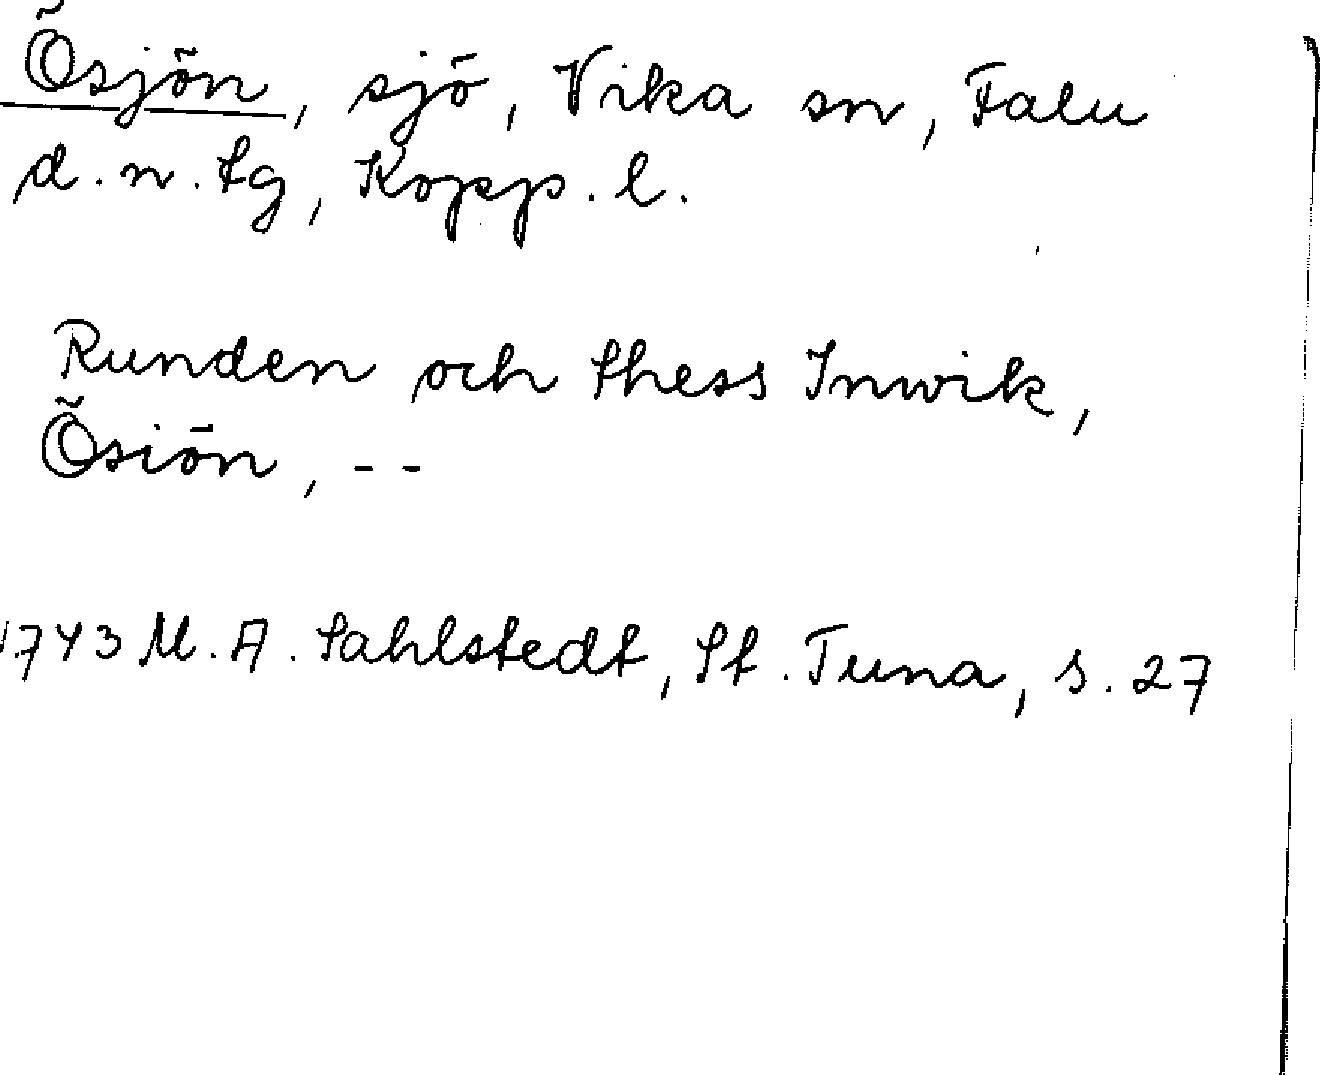 Ösjön, sjö, Vika sn, Falu
d.n. tg, Kopp. l.
Runden och thess Inwik,
Ösiön, --
1743 M. A. Sahlstedt, St. Tuna, s. 27